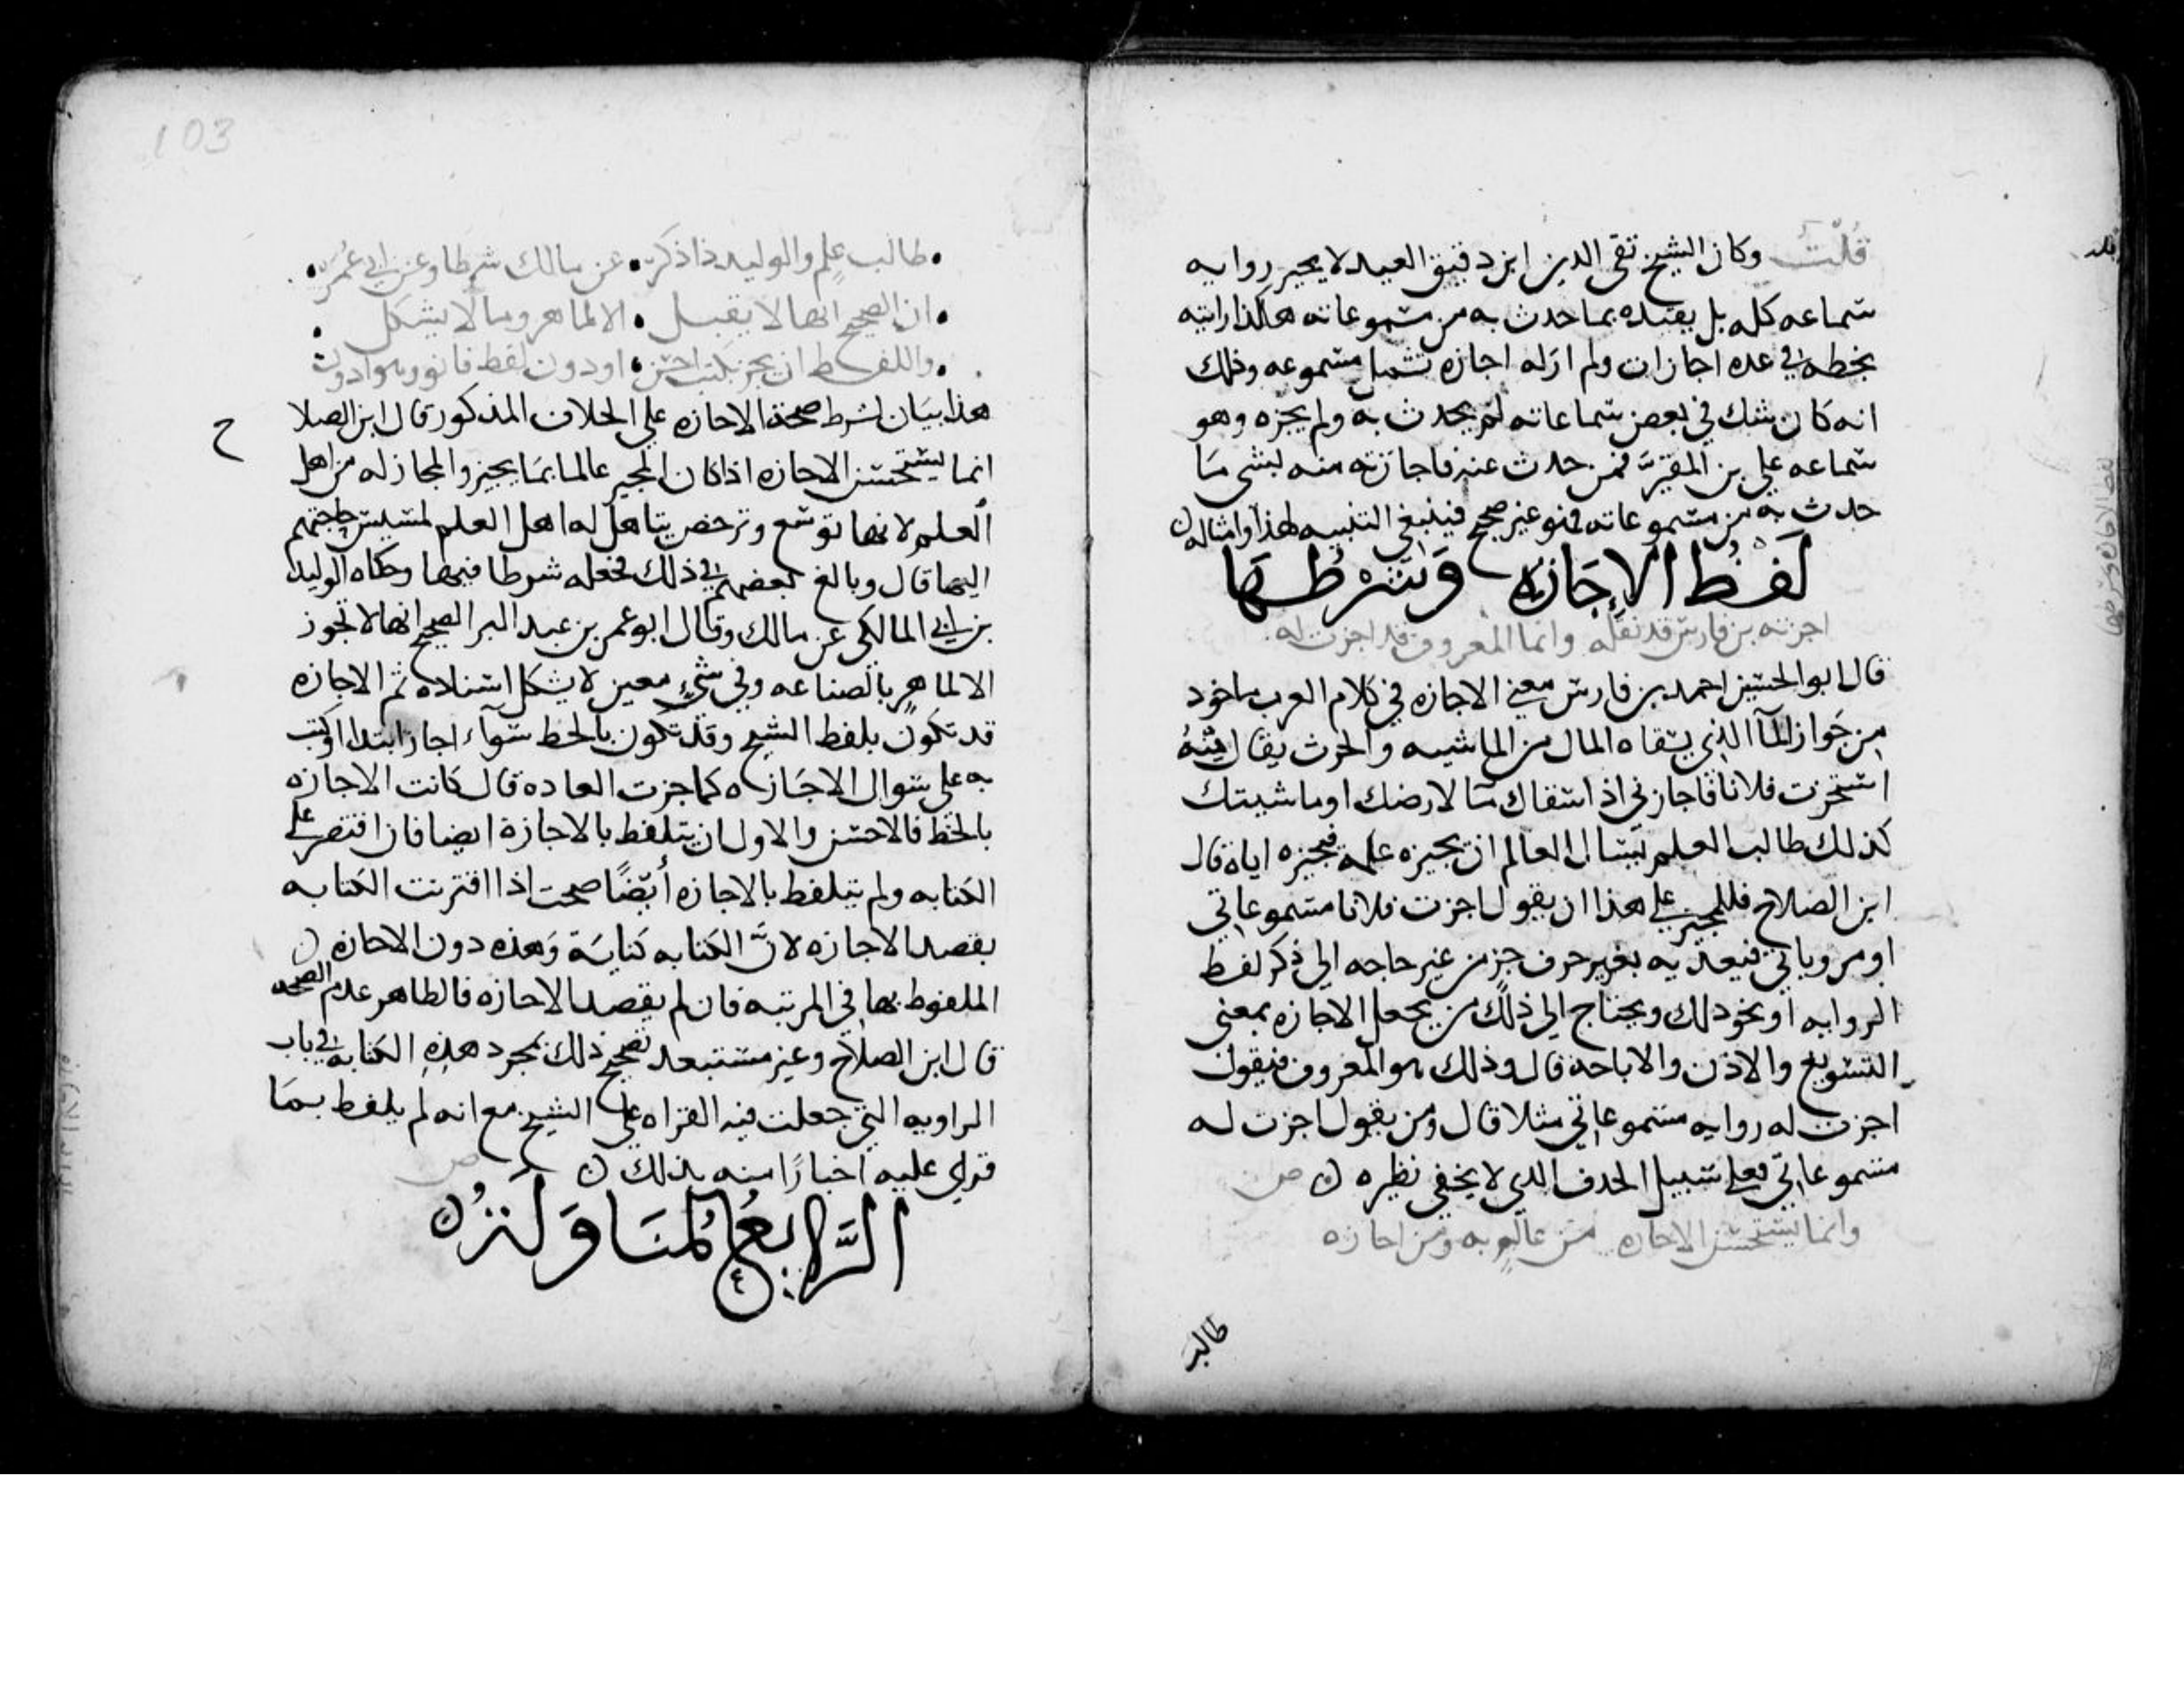 قُلْتُ وكان الشيخ تقى الدين ابن دقيق العيد لا يجيز روايه
سماعه كله بل يقيده بما حدث به من مسموعاته هكذا رايته
بخطه في عده اجازات ولم ار له اجازه تشمل مسموعه وذلك
انه كان شك في بعض سماعاته لم يحدث به ولم يجزه وهو
سماعه على بن المقيّر فمن حدث عنه باجازته منه بشى مما
حدث به من مسموعاته فهو غير صحيح فينبغي التنبيه لهذا وامثاله
لَفْظُ الاِجَازَهِ وَشَرْطُهَا
اجزته بن فارس قد نقله وانما المعروف قد اجزت له
قال ابو الحسين احمد بن فارس معنى الاجازه في كلام العرب ماخوذ
من جَواز المآ الذي يسقاه المال من الماشيه والحرث يقال منه
استجزت فلانا فاجازني اذا اسقاك مآ لارضك او ماشيتك
كذلك طالب العلم يسال العالم ان يجيزه علمه فيجيزه اياه قال
ابن الصلاح فللمجيز على هذا ان يقول اجزت فلانا مسموعاتي
او مروياتي فيعديه بغير حرف جر من غير حاجه الى ذكر لفظ
الروايه او نحو ذلك ويحتاج الى ذلك من يجعل الاجازه بمعنى
التسويغ والاذن والاباحه قال وذلك هو المعروف فيقول
اجزت له روايه مسموعاتي مثلا قال ومن يقول اجزت له
مسموعاتي فعلى سبيل الحذف الذي لا يخفى نظيره ص
وانما يستحسن الاجازه من عالم به ومن اجازه
طالب
103
طالب علم والوليد ذا ذكر عن مالك شرطا وعن ابي عُمَر
ان الصحيح انها لا يقبل الا لماهر وما لا يشكل
واللفظ ان يجز بكتب احسن او دون لفظ فانو وهو ادون
هذا بيان لشرط صحة الاجازه على الخلاف المذكور قال ابن الصلا
ح
انما يستحسن الاجازه اذا كان المجيز عالما بما يجيز والمجاز له من اهل
العلم لانها توسع وترخص يتاهل له اهل العلم لمسيس حاجتهم
اليها قال وبالغ بعضهم في ذلك فجعله شرطا فيها وحكاه الوليد
بن المالكي عن مالك وقال ابو عمر بن عبد البر الصحيح انها لا تجوز
الا لماهر بالصناعه وفي شيءٍ معين لا يشكل اسناده ثم الاجازه
قد تكون بلفظ الشيخ وقد تكون بالخط سوآء اجاز ابتدا او كتب
به على سوال الاجازه كما جرت العاده قال كانت الاجازه
بالخط فالاحسن والاولى ان يتلفظ بالاجازة ايضا فان اقتصر على
الكتابه ولم يتلفظ بالاجازه أيضًا صحت اذا اقترنت الكتابه
بقصد الاجازه لانَّ الكتابه كناية وهذه دون الاجازه
الملفوظ بها في المرتبه فان لم يقصد الاجازه فالظاهر عدم الصحه
قال ابن الصلاح وغير مستبعد تصحيح ذلك بمجرد هذه الكتابه في باب
الروايه التي جعلت فيه القراه على الشيخ مع انه لم يلفظ بما
قراي عليه اخبارًا منه بذلك ص
الرَّابعُ المُنَاوَلَةُ